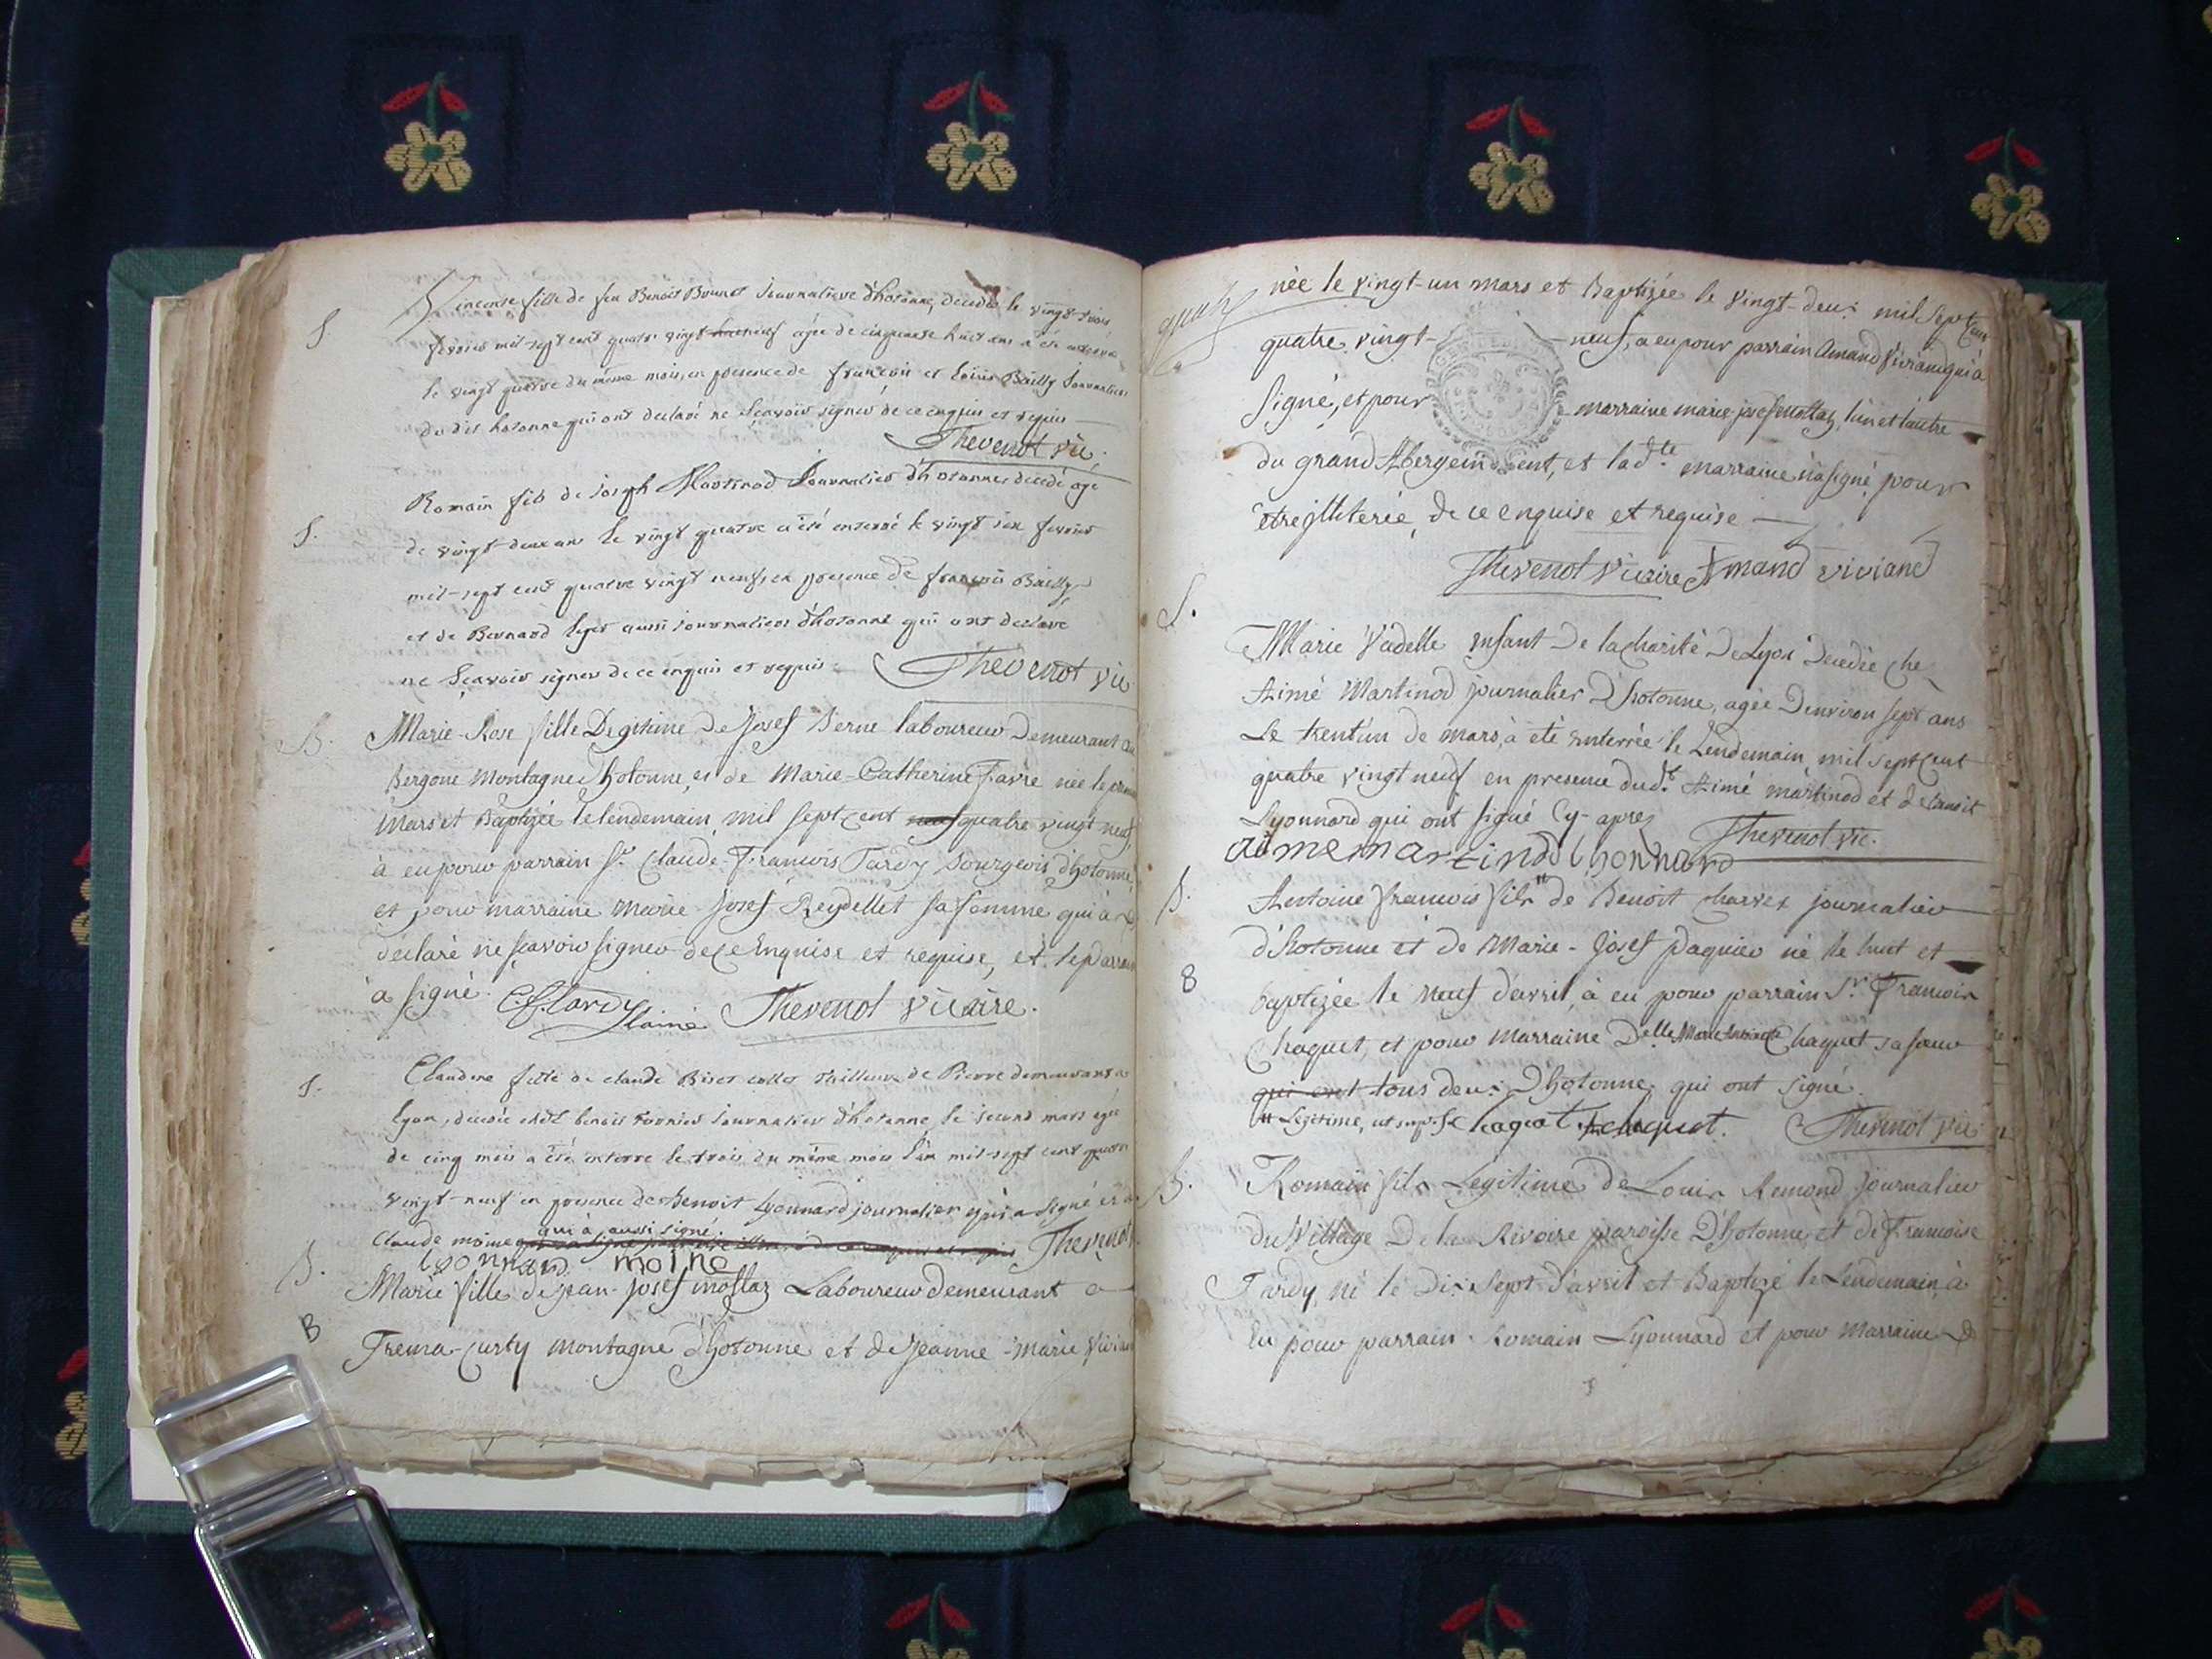 S.
fille de feu Benoit Brunet Journaliere d'hotonne, decedée le vingt-trois
fevrier mil-sept cent quatre vingt neuf agée de cinquante huit ans a été enterrée
le vingt quatre du même mois, en presence de françois et Louis Bailly Journaliers
du dit hotonne qui ont declaré ne sçavoir signer de ce enquis et requis
Thevenot vic.
S.
Romain fils de Joseph Martinod Journalier d'hotonne decedé agé
de vingt-deux ans le vingt quatre a été enterré le vingt six fevrier
mil-sept cent quatre vingt neuf, en presence de françois Bailly
et de Bernard leger aussi journaliers d'hotonne qui ont declaré
ne sçavoir signer de ce enquis et requis. Thevenot vic
B.
Marie-Rose fille Legitime de Josef Berne laboureur demeurant au
Bergone Montagne d'hotonne, et de Marie-Catherine Favre née le premier
mars et Baptizée le lendemain, mil sept cent neuf quatre vingt neuf,
à eu pour parrain Sr. Claude-Francois Tardy Bourgeois d'hotonne,
et pour marraine Marie-Josef Reydellet sa femme qui à
declaré ne sçavoir signer de ce Enquise et requise, et le parrain
à signé. C.f. tardy laine Thevenot vicaire.
S.
Claudine fille de claude tailleur de Pierre demeurant a
lyon, decedée chez benoit fornier Journalier d'hotonne le second mars agée
de cinq mois a été enterré le trois du même mois l'an mil-sept cent quatre
vingt-neuf en presence de Benoit Lyonnard journalier qui a signé et de
qui à aussi signé
Claude moine Thevenot
lyonnard moine
B.
Marie fille de jean-josef mottaz Laboureur demeurant a
B
Trema-Curty montagne d'hotonne et de jeanne-marie Viviand
née le vingt-un mars et Baptizée le vingt-deux mil sept cent
quatre vingt-neuf, a eu pour parrain Amand Viviand qui à
signé, et pour marraine marie josef mottaz, l'un et l'autre
du grand Abergement, et lad.te marraine n'a signé pour
être illiterée, de ce enquise et requise
Thevenot vicaire Amand viviand
S.
Marie Vadelle enfant de la charité de Lyon decedée che
Aimé Martinod journalier d'hotonne, agée d'environ sept ans
Le trent'un de mars, à été enterrée le Lendemain mil sept cent
quatre vingt neuf en presence dud.t Aimé martinod et Benoit
Lyonnard qui ont signé Cy-aprez
Thevenot vic.
aimé martinod lyonnard
B.
Antoine francois fils # de Benoit Charvet journalier
d'hotonne et de Marie-Josef Paquier né le huit et
8
baptizée le neuf d'avril, à eu pour parrain Sr. Francois
Chaquet, et pour marraine Delle Marie Chaquet sa sœur
qui ont tous deux d'hotonne, qui ont signé.
# Legitime, ut sup. Chaquet. Thevenot vic
B.
Romain fils Legitime de Louis Remond journalier
du Village De la Rivoire paroisse D'hotonne, et de Francoise
Tardy, né le Dix Sept d'avril et Baptizé le Lendemain, à
Eu pour parrain Romain Lyonnard et pour Marraine